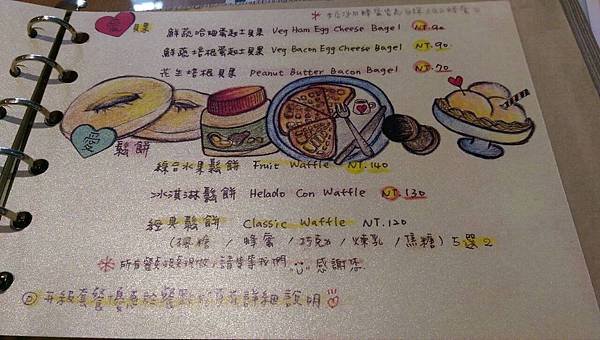 愛 貝果
鮮蔬哈姆蛋起士貝果 Veg Ham Egg Cheese Bagel NT.90
鮮蔬培根蛋起士貝果 Veg Bacon Egg Cheese Bagel NT.90
花生培根貝果 Peanut Butter Bacon Bagel NT.70
愛 鬆餅
綜合水果鬆餅 Fruit Waffle NT.140
冰淇淋鬆餅 Helado Con Waffle NT.130
經典鬆餅 Classic Waffle NT.120
(楓糖 / 蜂蜜 / 巧克力 / 煉乳 / 焦糖) 5選2
*所有餐點現點現做,請等等我們 感謝您
升級套餐優惠
詳細說明